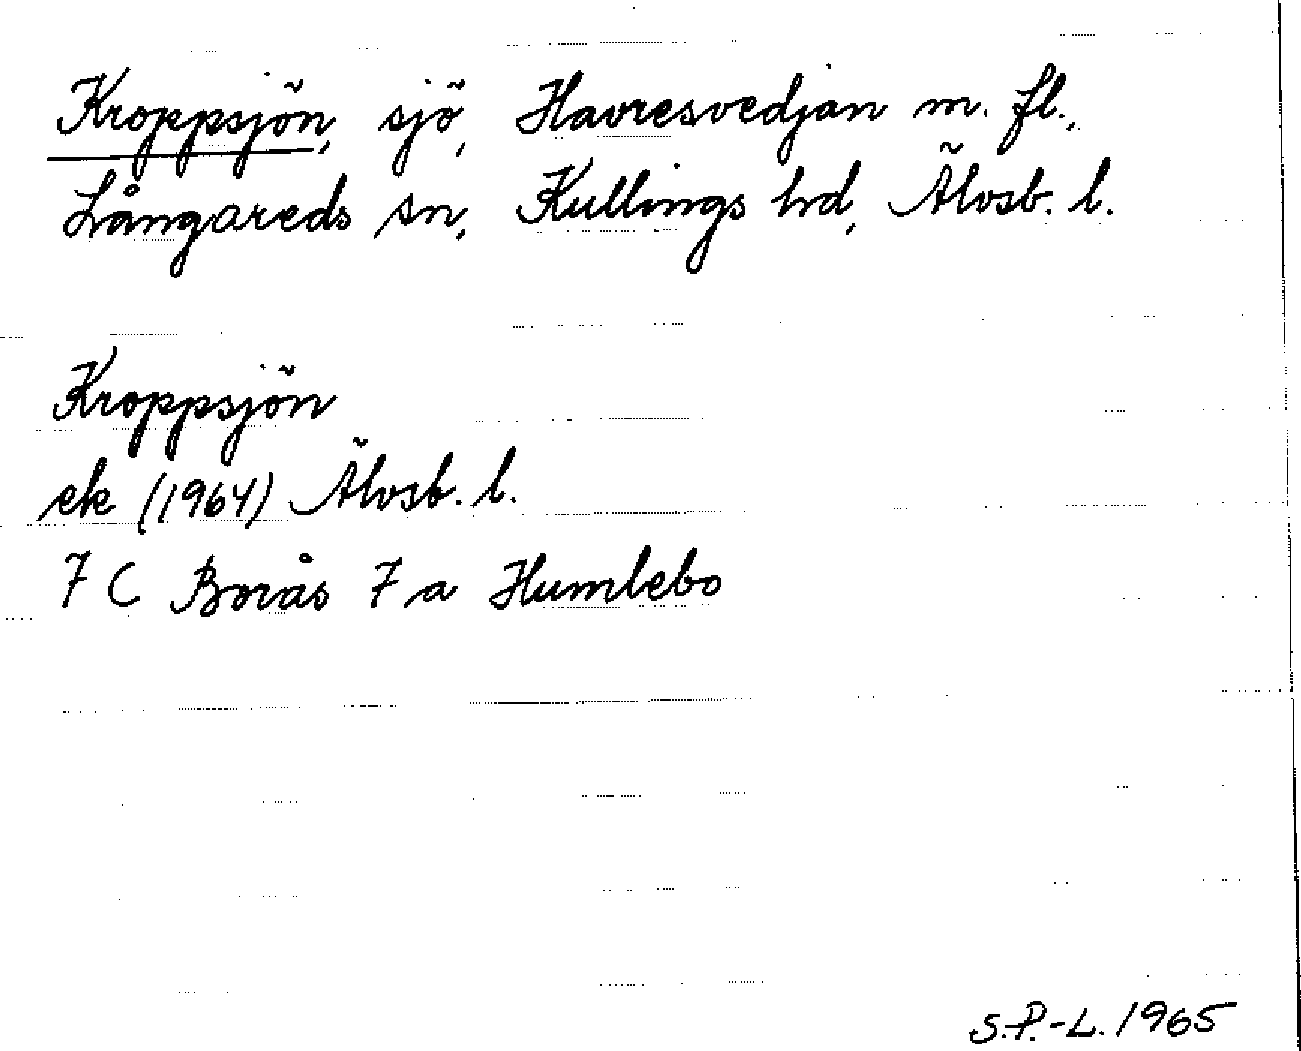 Kroppsjön, sjö, Havresvedjan m. fl.,
Långareds sn, Kullings hd, Älvsb. l.
Kroppsjön
ek (1964) Älvsb. l.
7 C Borås 7 a Humlebo
S.P.-L. 1965